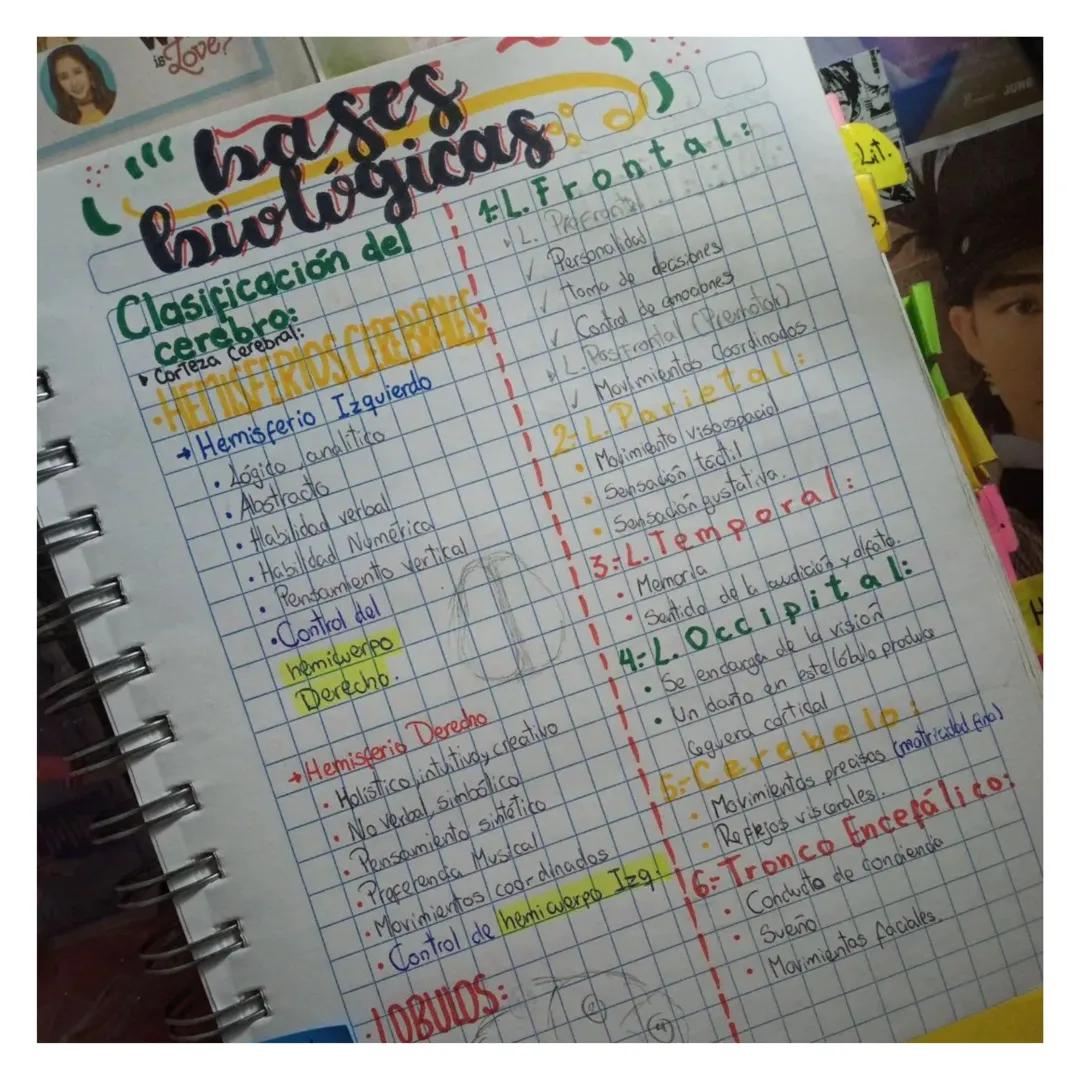 is Love?
JUNE
Lit.
2
H
bases
biológicas
Clasificación del
cerebro:
Corteza Cerebral:
• HEMISFERIOS CEREBRALES
→ Hemisferio Izquierdo
• Lógico, analítico
• Abstracto
• Habilidad verbal
• Habilidad Númerica
• Pensamiento vertical
• Control del
hemicuerpo
Derecho.
→ Hemisferio Derecho
• Holístico, intuitivo y creativo
• No verbal, simbólico
• Pensamiento sintético
• Preferencia Musical
• Movimientos coordinados
• Control de hemicuerpo Izq.
• LOBULOS:
1: L. Frontal:
L. Prefrontal
✓ Personalidad
✓ Toma de decisiones
✓ Control de emociones
L. Posfrontal (Premotor)
✓ Movimientos Coordinados.
2- L. Parietal:
• Movimiento visoespacial
• Sensación táctil
• Sensación gustativa.
3:- L. Temporal:
• Memoria
• Sentido de la audición y olfato.
4:- L. Occipital:
• Se encarga de la visión
• Un daño en este lóbulo produce
Ceguera cortical
5:- Cerebelo:
• Movimientos precisos (motricidad fina)
• Reflejos viscerales.
6:- Tronco Encefálico:
• Conducta de conciencia
• Sueño
• Movimientos faciales.